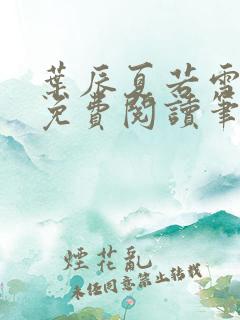 葉辰夏若雪
免費閱讀筆
煙花亂
未經同意禁止轉載